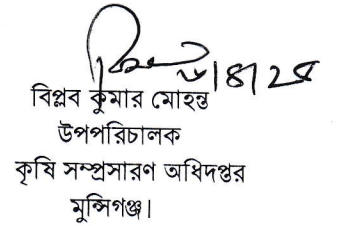 বিপ্লব কুমার মোহন্ত
উপপরিচালক
কৃষি সম্প্রসারণ অধিদপ্তর
মুন্সিগঞ্জ।